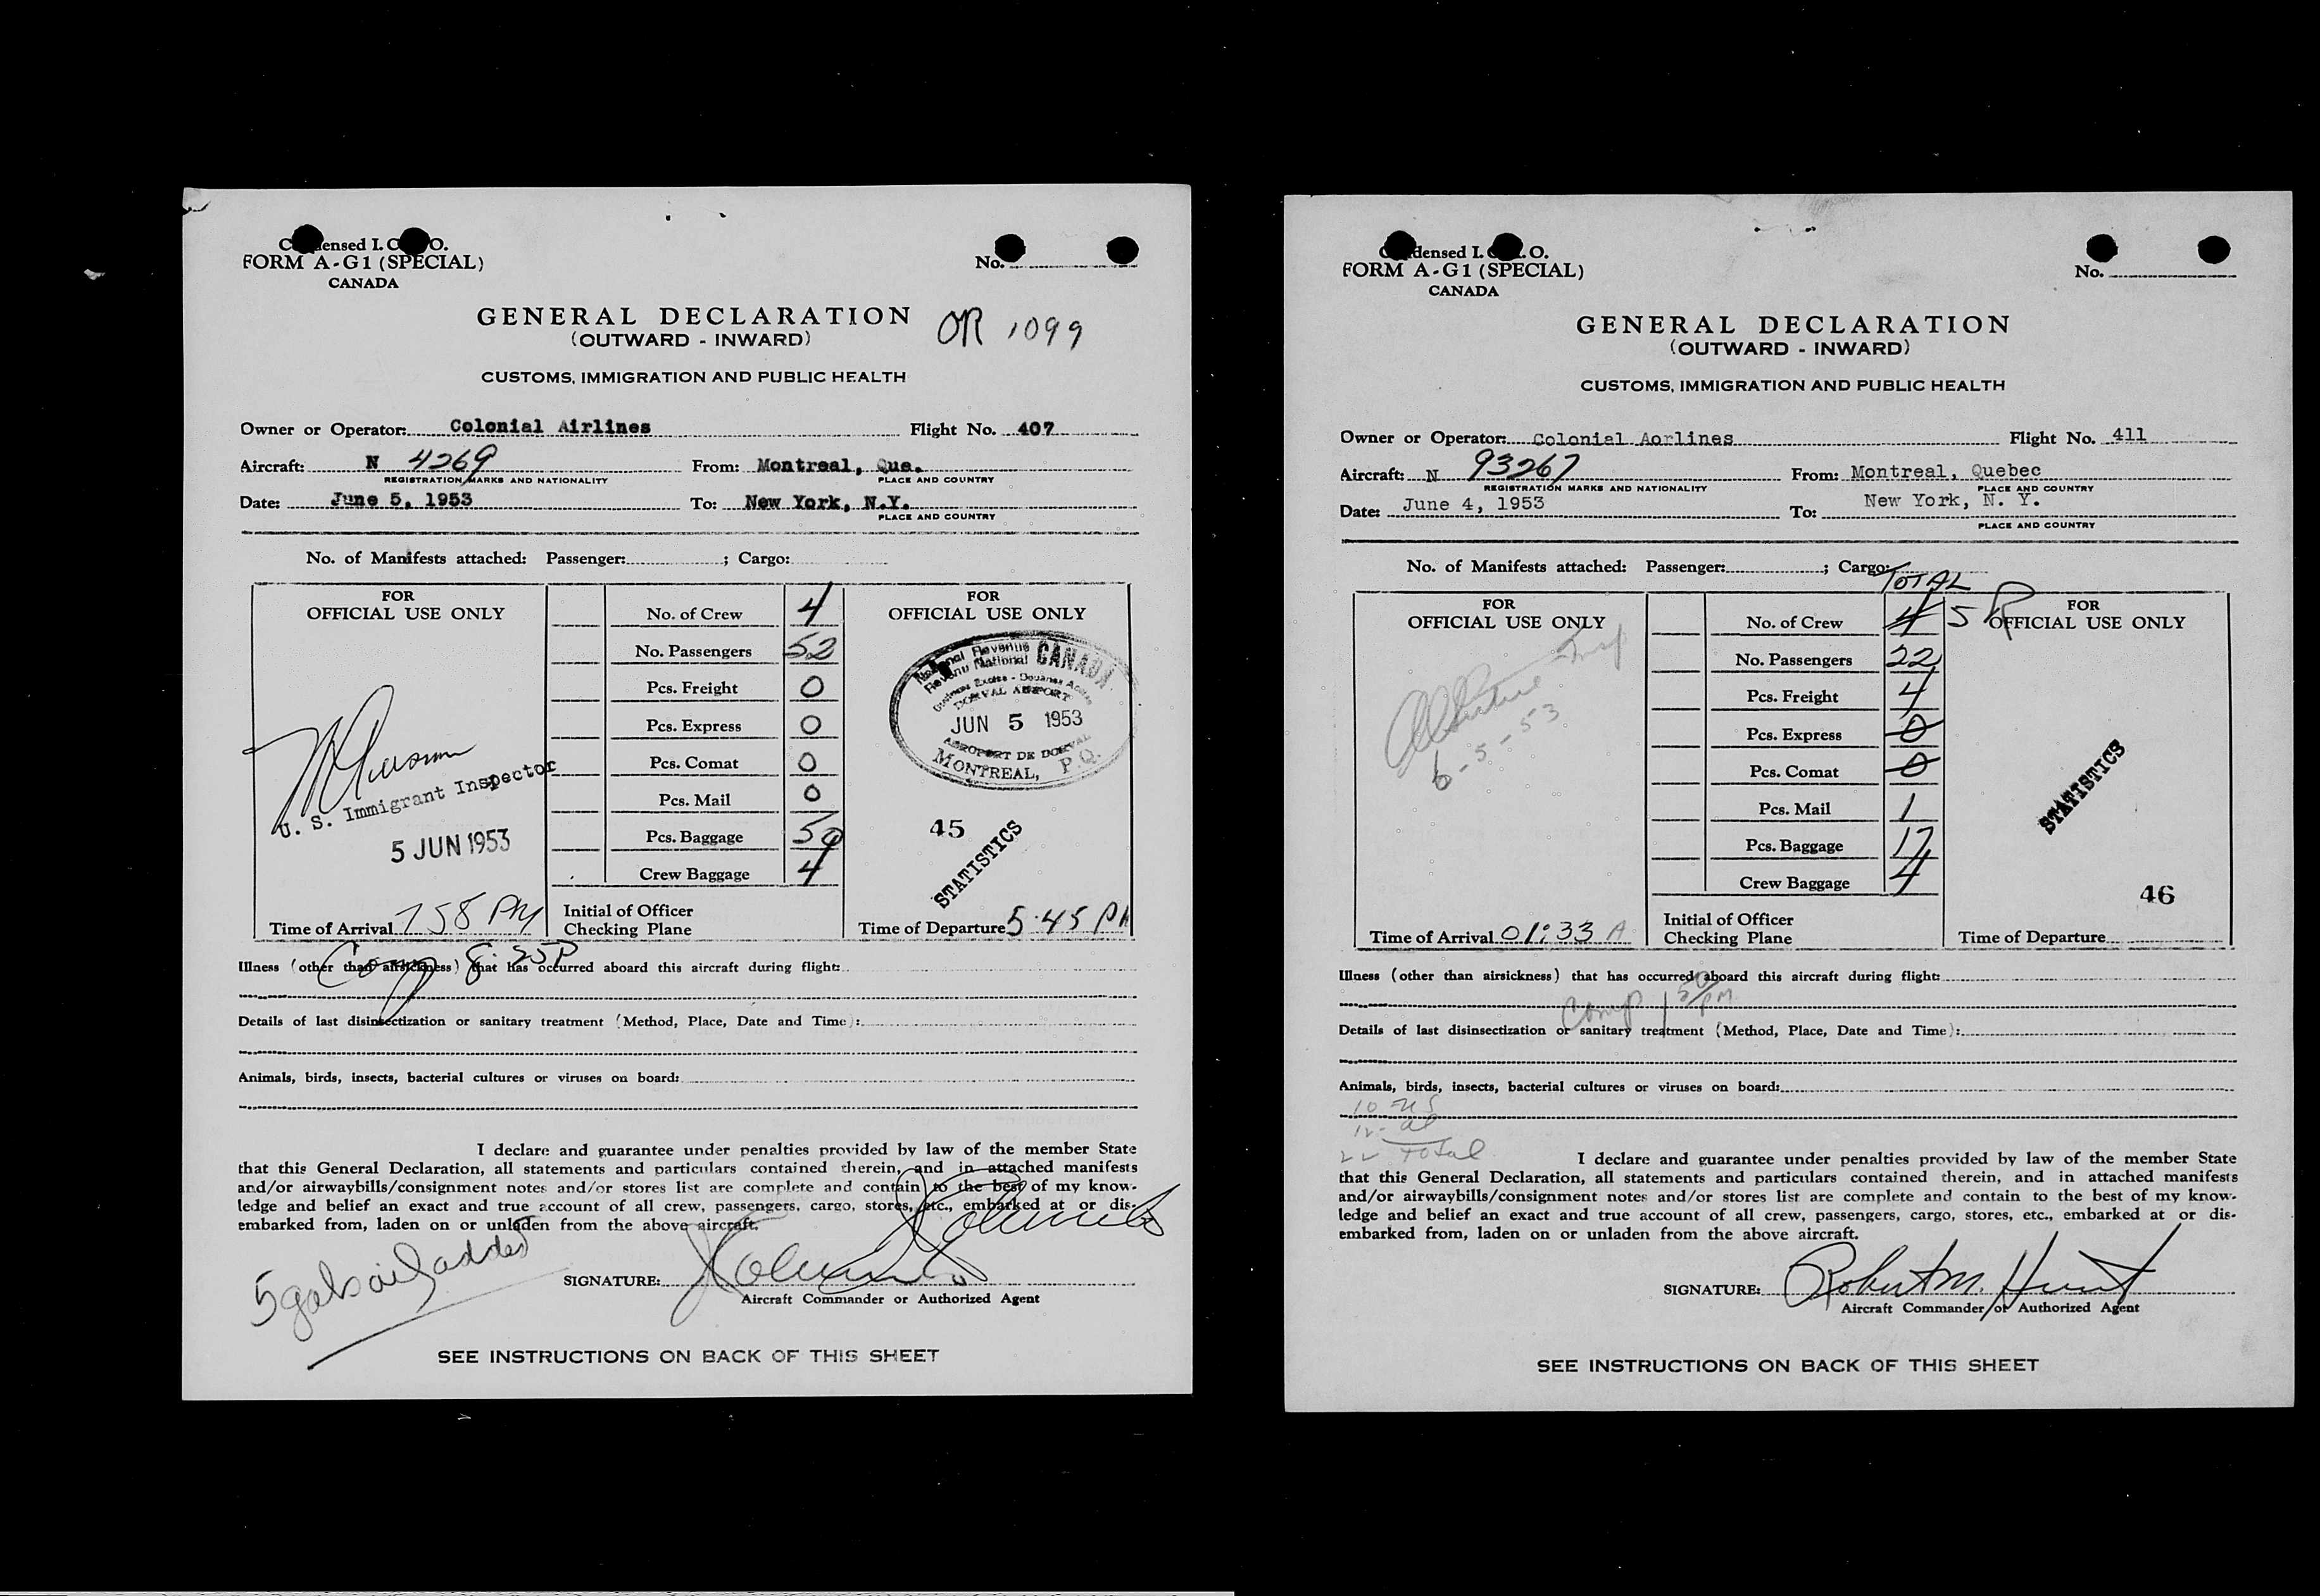 Condensed I. C. A. O.
FORM A-G1 (SPECIAL)
CANADA
No.
GENERAL DECLARATION
(OUTWARD - INWARD)
OR 1099
CUSTOMS, IMMIGRATION AND PUBLIC HEALTH
Owner or Operator: Colonial Airlines Flight No. 407
Aircraft: N 4269 From: Montreal, Que.
REGISTRATION MARKS AND NATIONALITY PLACE AND COUNTRY
Date: June 5, 1953 To: New York, N.Y.
PLACE AND COUNTRY
No. of Manifests attached: Passenger: ; Cargo:
FOR
OFFICIAL USE ONLY
U. S. Immigrant Inspector
5 JUN 1953
Time of Arrival 7 58 PM
No. of Crew 4
No. Passengers 52
Pcs. Freight 0
Pcs. Express 0
Pcs. Comat 0
Pcs. Mail 0
Pcs. Baggage 59
Crew Baggage 4
Initial of Officer
Checking Plane
FOR
OFFICIAL USE ONLY
National Revenue CANADA
Revenu National
DORVAL AIRPORT
JUN 5 1953
AEROPORT DE DORVAL
MONTREAL, P.Q.
45
STATISTICS
Time of Departure 5.45 PM
Comp 8:25P
Illness (other than airsickness) that has occurred aboard this aircraft during flight:
Details of last disinsectization or sanitary treatment (Method, Place, Date and Time):
Animals, birds, insects, bacterial cultures or viruses on board:
I declare and guarantee under penalties provided by law of the member State
that this General Declaration, all statements and particulars contained therein, and in attached manifests
and/or airwaybills/consignment notes and/or stores list are complete and contain to the best of my know-
ledge and belief an exact and true account of all crew, passengers, cargo, stores, etc., embarked at or dis-
embarked from, laden on or unladen from the above aircraft.
5 gals oil added
SIGNATURE:
Aircraft Commander or Authorized Agent
SEE INSTRUCTIONS ON BACK OF THIS SHEET
Condensed I. C. A. O.
FORM A-G1 (SPECIAL)
CANADA
No.
GENERAL DECLARATION
(OUTWARD - INWARD)
CUSTOMS, IMMIGRATION AND PUBLIC HEALTH
Owner or Operator: Colonial Aorlines Flight No. 411
Aircraft: N 93267 From: Montreal, Quebec
REGISTRATION MARKS AND NATIONALITY PLACE AND COUNTRY
Date: June 4, 1953 To: New York, N. Y.
PLACE AND COUNTRY
No. of Manifests attached: Passenger: ; Cargo:
TOTAL
FOR
OFFICIAL USE ONLY
6-5-53
Time of Arrival 01:33 A
No. of Crew 4 5
No. Passengers 22
Pcs. Freight 4
Pcs. Express 0
Pcs. Comat 0
Pcs. Mail 1
Pcs. Baggage 17
Crew Baggage 4
Initial of Officer
Checking Plane
FOR
OFFICIAL USE ONLY
STATISTICS
46
Time of Departure
Illness (other than airsickness) that has occurred aboard this aircraft during flight:
Comp 1 50 PM
Details of last disinsectization or sanitary treatment (Method, Place, Date and Time):
Animals, birds, insects, bacterial cultures or viruses on board:
10 US
12 - al
22 Total
I declare and guarantee under penalties provided by law of the member State
that this General Declaration, all statements and particulars contained therein, and in attached manifests
and/or airwaybills/consignment notes and/or stores list are complete and contain to the best of my know-
ledge and belief an exact and true account of all crew, passengers, cargo, stores, etc., embarked at or dis-
embarked from, laden on or unladen from the above aircraft.
SIGNATURE: Robert M. Hunt
Aircraft Commander or Authorized Agent
SEE INSTRUCTIONS ON BACK OF THIS SHEET